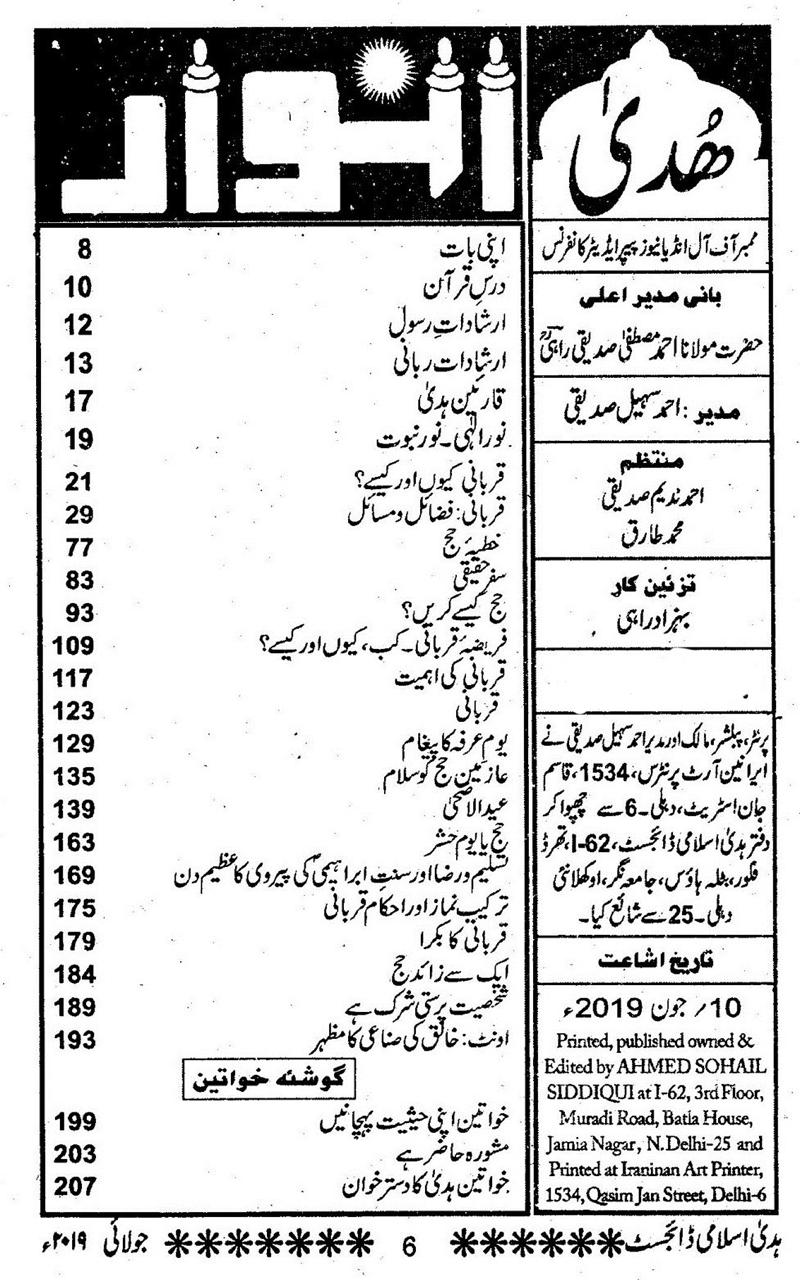 ھُدیٰ
انوار
ممبر آف آل انڈیا نیوز پیپر ایڈیٹر کانفرنس
بانی مدیر اعلی
حضرت مولانا احمد مصطفیٰ صدیقی راہیؒ
مدیر : احمد سہیل صدیقی
منتظم
احمد ندیم صدیقی
محمد طارق
تزئین کار
بہزاد راہی
پرنٹر، پبلشر، مالک اور مدیر احمد سہیل صدیقی نے
ایرانین آرٹ پرنٹرس، 1534، قاسم
جان اسٹریٹ، دہلی۔6 سے چھپوا کر
دفتر ہدیٰ اسلامی ڈائجسٹ، I-62، تھرڈ
فلور، بٹلہ ہاؤس، جامعہ نگر، اوکھلا نئی
دہلی۔25 سے شائع کیا۔
تاریخ اشاعت
10/ جون 2019ء
Printed, published owned &
Edited by AHMED SOHAIL
SIDDIQUI at I-62, 3rd Floor,
Muradi Road, Batla House,
Jamia Nagar, N.Delhi-25 and
Printed at Iraninan Art Printer,
1534, Qasim Jan Street, Delhi-6
اپنی بات 8
درسِ قرآن 10
ارشاداتِ رسول 12
ارشادات ربانی 13
قارئین ہدیٰ 17
نور الٰہی۔نور نبوت 19
قربانی کیوں اور کیسے؟ 21
قربانی: فضائل و مسائل 29
خطبۂ حج 77
سفر حقیقی 83
حج کیسے کریں؟ 93
فریضۂ قربانی۔ کب، کیوں اور کیسے؟ 109
قربانی کی اہمیت 117
قربانی 123
یوم عرفہ کا پیغام 129
عازمین حج کو سلام 135
عید الاضحیٰ 139
حج یا یوم حشر 163
تسلیم و رضا اور سنتِ ابراہیمیؑ کی پیروی کا عظیم دن 169
ترکیب نماز اور احکام قربانی 175
قربانی کا بکرا 179
ایک سے زائد حج 184
شخصیت پرستی شرک ہے 189
اونٹ: خالق کی صناعی کا مظہر 193
گوشئہ خواتین
خواتین اپنی حیثیت پہچانیں 199
مشورہ حاضر ہے 203
خواتین ہدیٰ کا دسترخوان 207
ہدیٰ اسلامی ڈائجسٹ ****** 6 ******* جولائی ۲۰۱۹ء